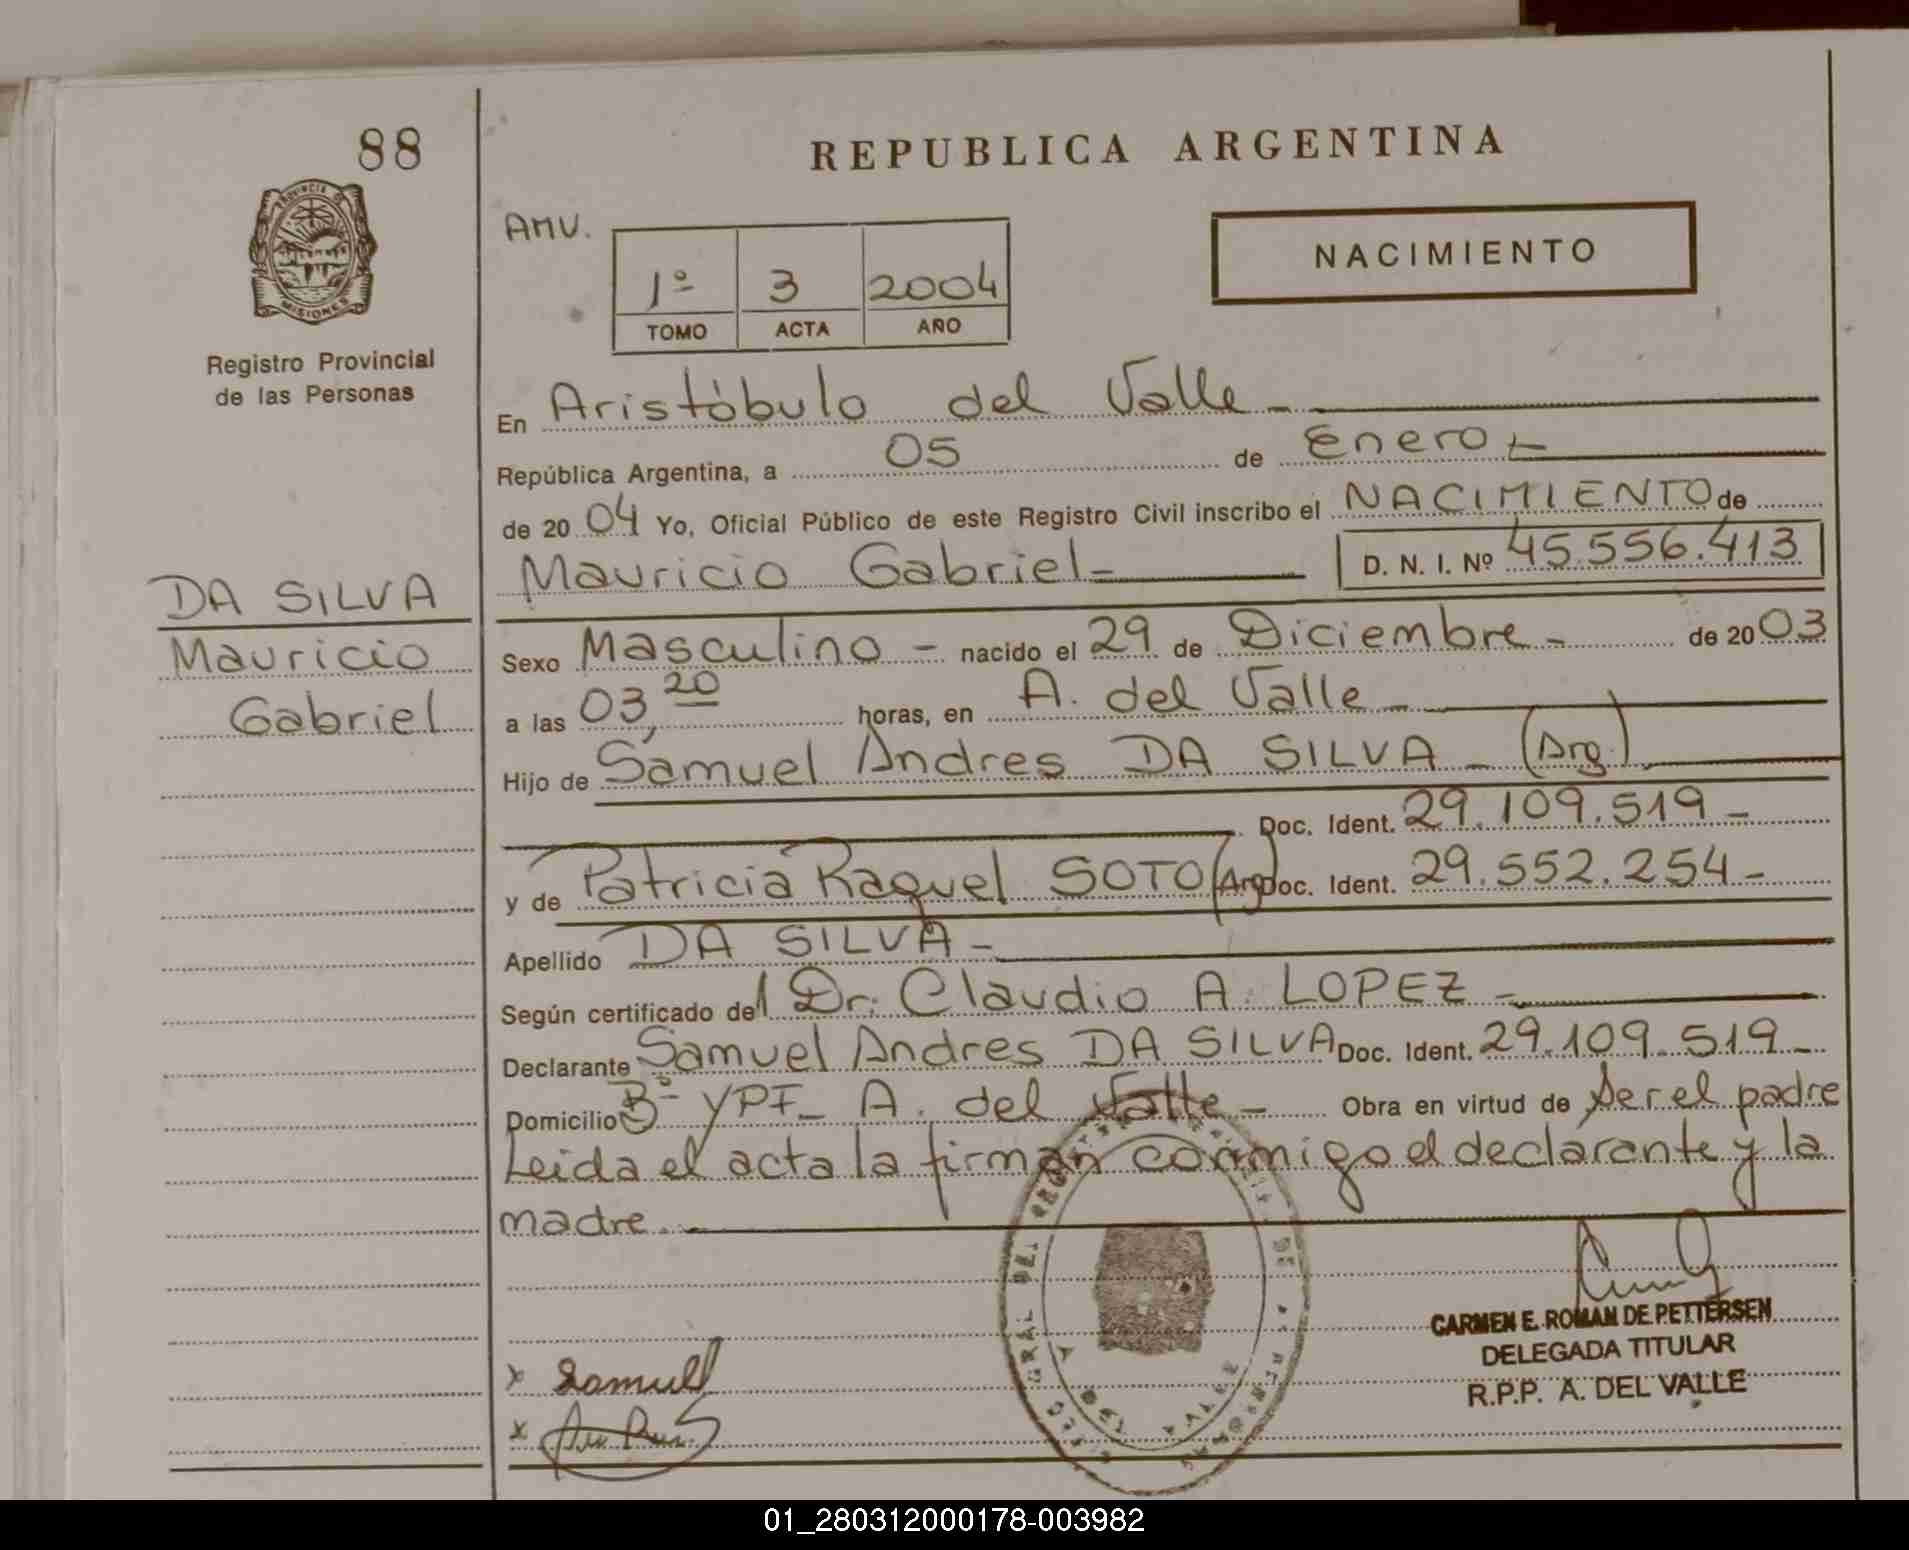 88
PROVINCIA DE
MISIONES
Registro Provincial
de las Personas
DA SILVA
Mauricio
Gabriel
REPUBLICA ARGENTINA
AMV.
1º 3 2004
TOMO ACTA AÑO
NACIMIENTO
En Aristóbulo del Valle -
República Argentina, a 05 de Enero -
de 20 04 Yo, Oficial Público de este Registro Civil inscribo el NACIMIENTO de
Mauricio Gabriel - D. N. I. Nº 45.556.413
Sexo Masculino - nacido el 29 de Diciembre - de 20 03
a las 03,20 horas, en A. del Valle -
Hijo de Samuel Andres DA SILVA - (Arg.)
Doc. Ident. 29.109.519 -
y de Patricia Raquel SOTO (Arg) Doc. Ident. 29.552.254 -
Apellido DA SILVA -
Según certificado del Dr. Claudio A. LOPEZ -
Declarante Samuel Andres DA SILVA Doc. Ident. 29.109.519 -
Domicilio Bº YPF - A. del Valle - Obra en virtud de Ser el padre
Leida el acta la firman conmigo el declarante y la
madre. -
CARMEN E. ROMAN DE PETTERSEN
DELEGADA TITULAR
R.P.P. A. DEL VALLE
x Samuel
x
01_280312000178-003982